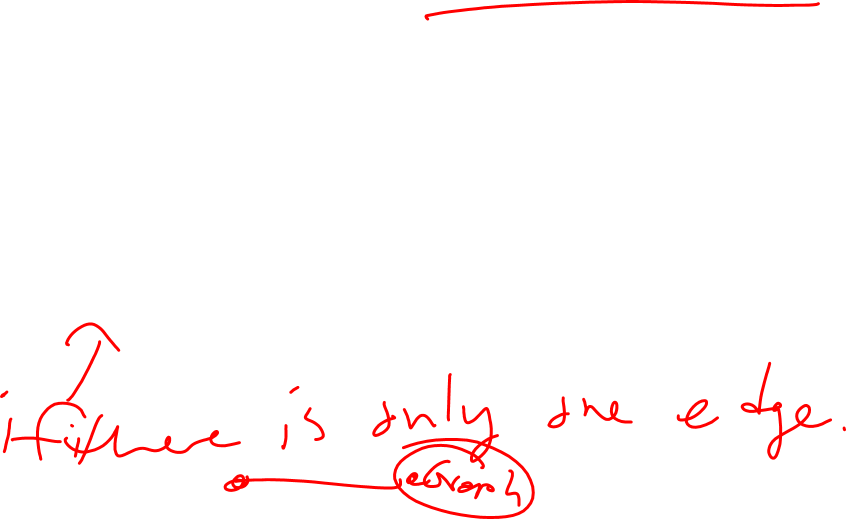 if there is only one edge.
Graph